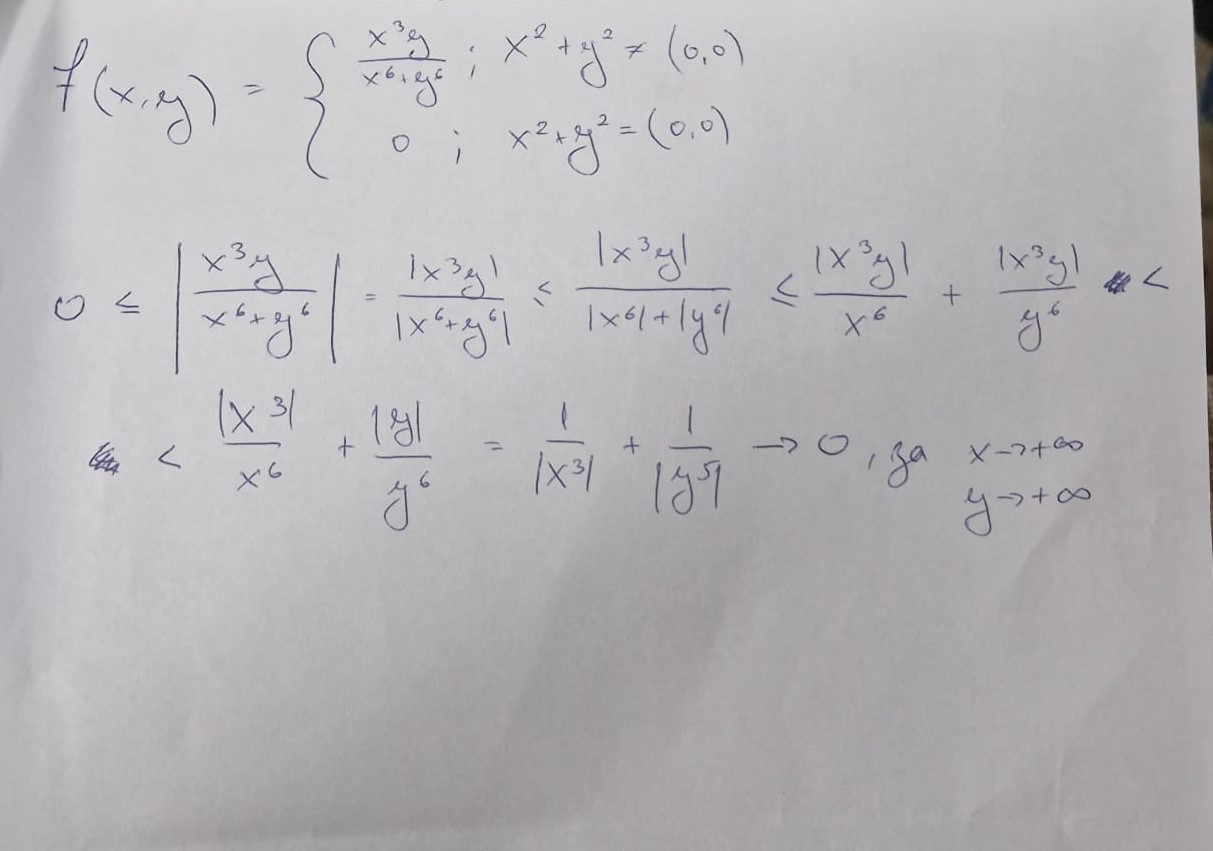 f(x,y) = { x³y / x⁶+y⁶ ; x²+y² ≠ (0,0)
0 ; x²+y² = (0,0)
0 ≤ | x³y / x⁶+y⁶ | = |x³y| / |x⁶+y⁶| ≤ |x³y| / |x⁶|+|y⁶| ≤ |x³y| / x⁶ + |x³y| / y⁶ <
< |x³| / x⁶ + |y| / y⁶ = 1 / |x³| + 1 / |y⁵| → 0, за x→+∞
y→+∞